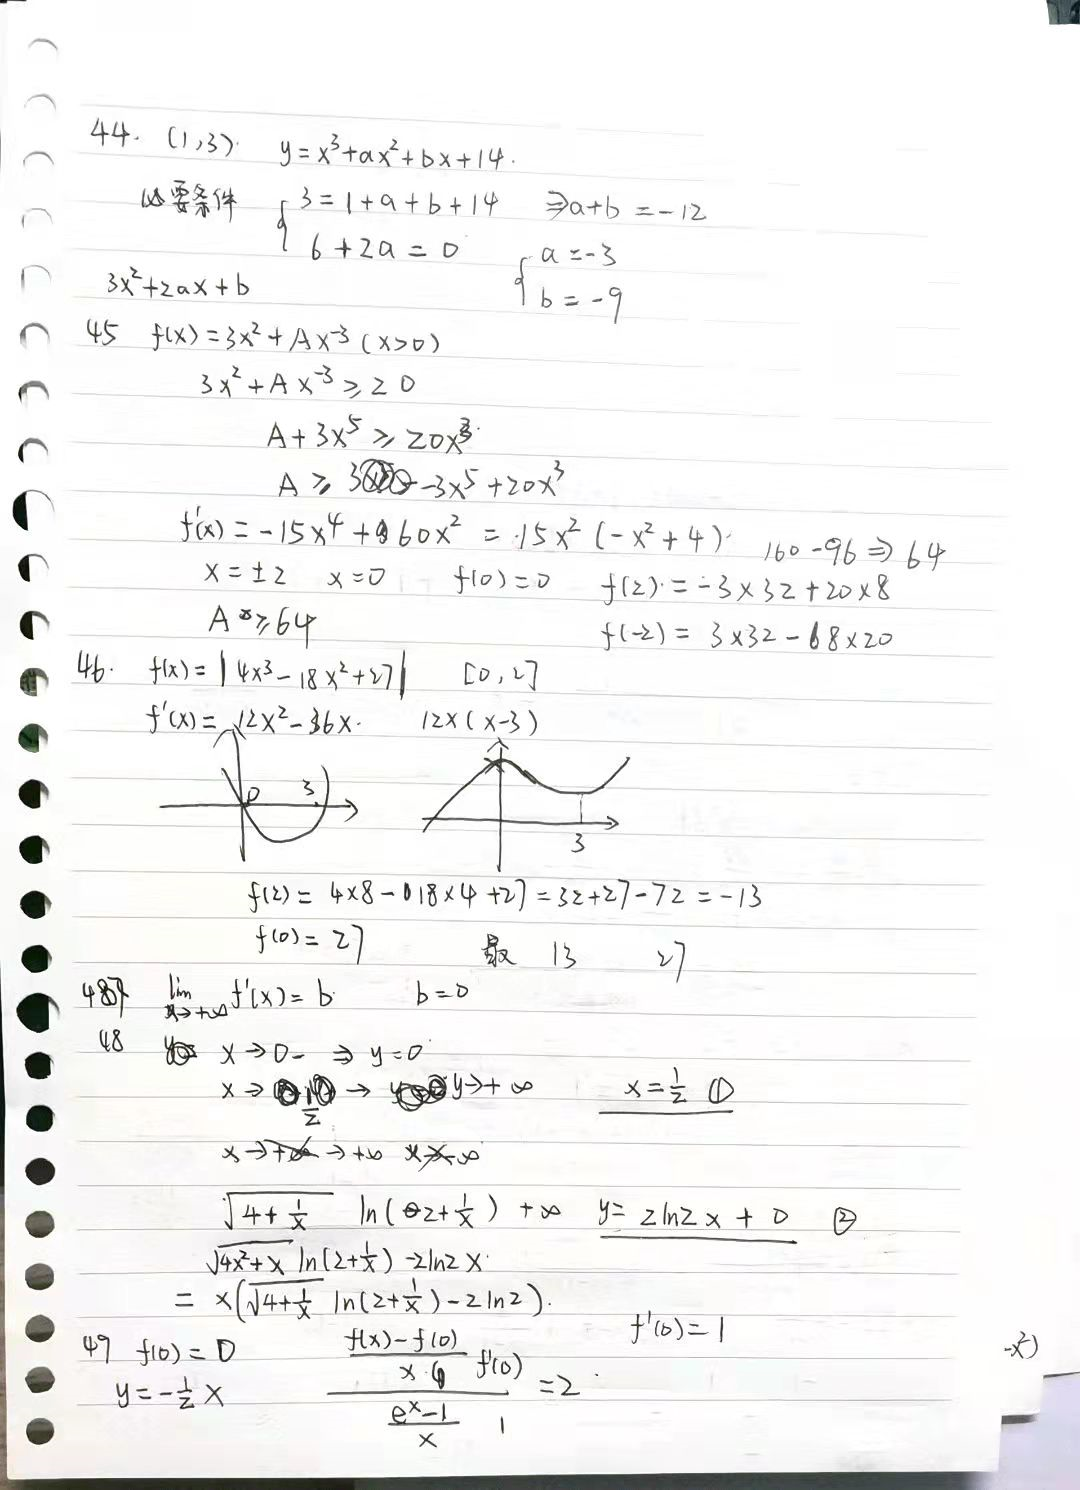 44. (1,3) y=x³+ax²+bx+14.
必要条件 { 3=1+a+b+14 ⇒a+b=-12
6+2a=0 { a=-3
3x²+2ax+b b=-9
45 f(x)=3x²+Ax⁻³ (x>0)
3x²+Ax⁻³≥20
A+3x⁵≥20x³
A≥ -3x⁵+20x³
f'(x)=-15x⁴+60x²=15x²(-x²+4) 160-96⇒64
x=±2 x=0 f(0)=0 f(2)=-3×32+20×8
A≥64 f(-2)=3×32-8×20
46. f(x)=|4x³-18x²+27| [0,2]
f'(x)=12x²-36x. 12x(x-3)
0 3 3
f(2)=4×8-18×4+27=32+27-72=-13
f(0)=27 最 13 27
lim x→+∞ f'(x)=b b=0
48 x→0- ⇒ y=0
x→ 1/2 → y→+∞ x=1/2 ①
x→+∞→+∞
√(4+1/x) ln(2+1/x) +∞ y=2ln2x+0 ②
√(4x²+x) ln(2+1/x)-2ln2x
=x(√(4+1/x) ln(2+1/x)-2ln2).
49 f(0)=0 (f(x)-f(0))/x f'(0) f'(0)=1 -x²)
y=-1/2 x =2
(eˣ-1)/x 1